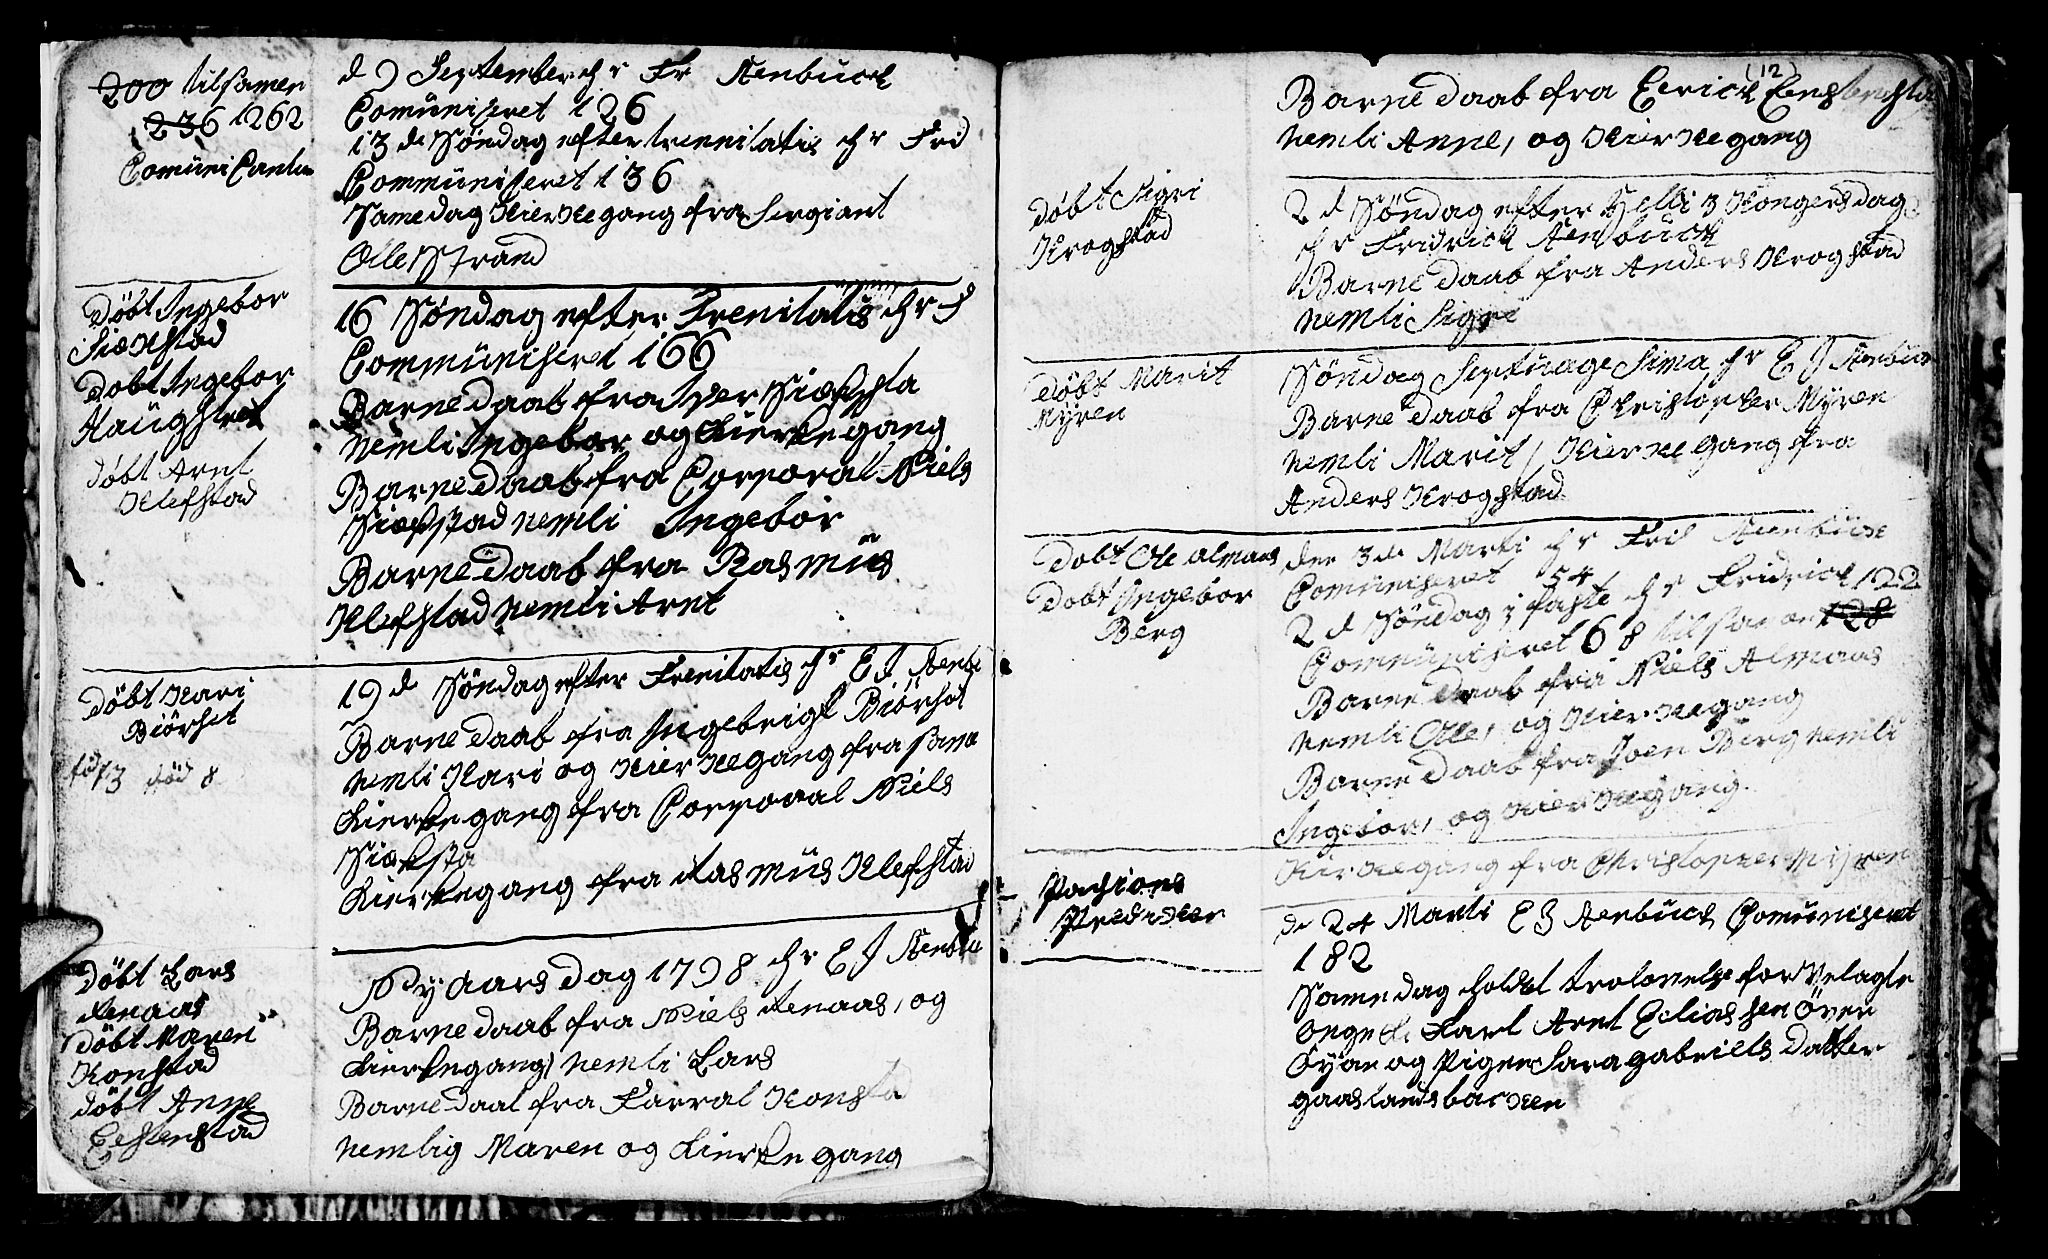 200 tilsamen
236 1262
Comuni Canter
d 9 September hr Fr Stenbuck
Comuniseret 126
13 de Søndag efter trenitatis hr Frid
Commüniseret 136
Same dag Kierkegang fra Sergiant
Olle Strand
Døbt Ingebor
Siækstad
Døbt Ingebor
Døbt Arnt
Klefstad
16 Søndag efter Trenitatis hr F
Commüniseret 166
Barne daab fra Iver Siæksta
nemli Ingebor og Kierkegang
Barne daab fra Corporal Niels
Siækstad nemli Ingebor
Barne daab fra Rasmüs
Klefstad nemli Arnt
Døbt Kari
Biørset
fød 3 død 8
19 d Søndag efter Trenitatis hr E J Stenb
Barne daab fra Ingebrigt Biørset
nemli Kari og Kierkegang fra same
Kierkegang fra Corporal Niels
Siæksta
Kierkegang fra Rasmüs Klefstad
Døbt Lars
Renaas
Døbt Maren
Konstad
døbt Anne
Eestenstad
Ny Aars Dag 1798 hr E J Stenb
Barne daab fra Niels Renaas, og
Kierkegang, nemli Lars
Barne daab fra Farral Konstad
nemlig Maren og Kierkegang
(12)
Barne daab fra Eerick Eestensta
nemli Anne, og Kierkegang
Døbt Sigri
Krogstad
2 d Søndag efter Helli 3 Kongers dag
hr Fridrick Stenbuck
Barne daab fra Anders Krogstad
nemli Sigri
Døbt Marit
Myren
Søndag Septuage Sima hr E J Stenbuck
Barne daab fra Christopher Myren
nemli Marit, Kierkegang fra
Anders Krogstad
Døbt Ole Almaas
Døbt Ingebor
Berg
den 3 de Marti hr Frid Stenbuck
Comuniseret 54
2 d Søndag i faste hr Fridrick 122
Commüniseret 68 tilsamen 128
Barne daab fra Niels Almaas
nemli Olle, og Kierkegang
Barne daab fra Joen Berg nemli
Ingebor, og Kierkegang.
Kirkegang fra Christopher Myren
Pasions
Prediker
de 24 Marti E J Stenbuck Comuniseret
182
Same dag holdet trolovelse for Velagte
Unge Karl Arnt Eeliassen Över
Öyan og Pigen Sara gabriels Datter
gaaslandsbacken